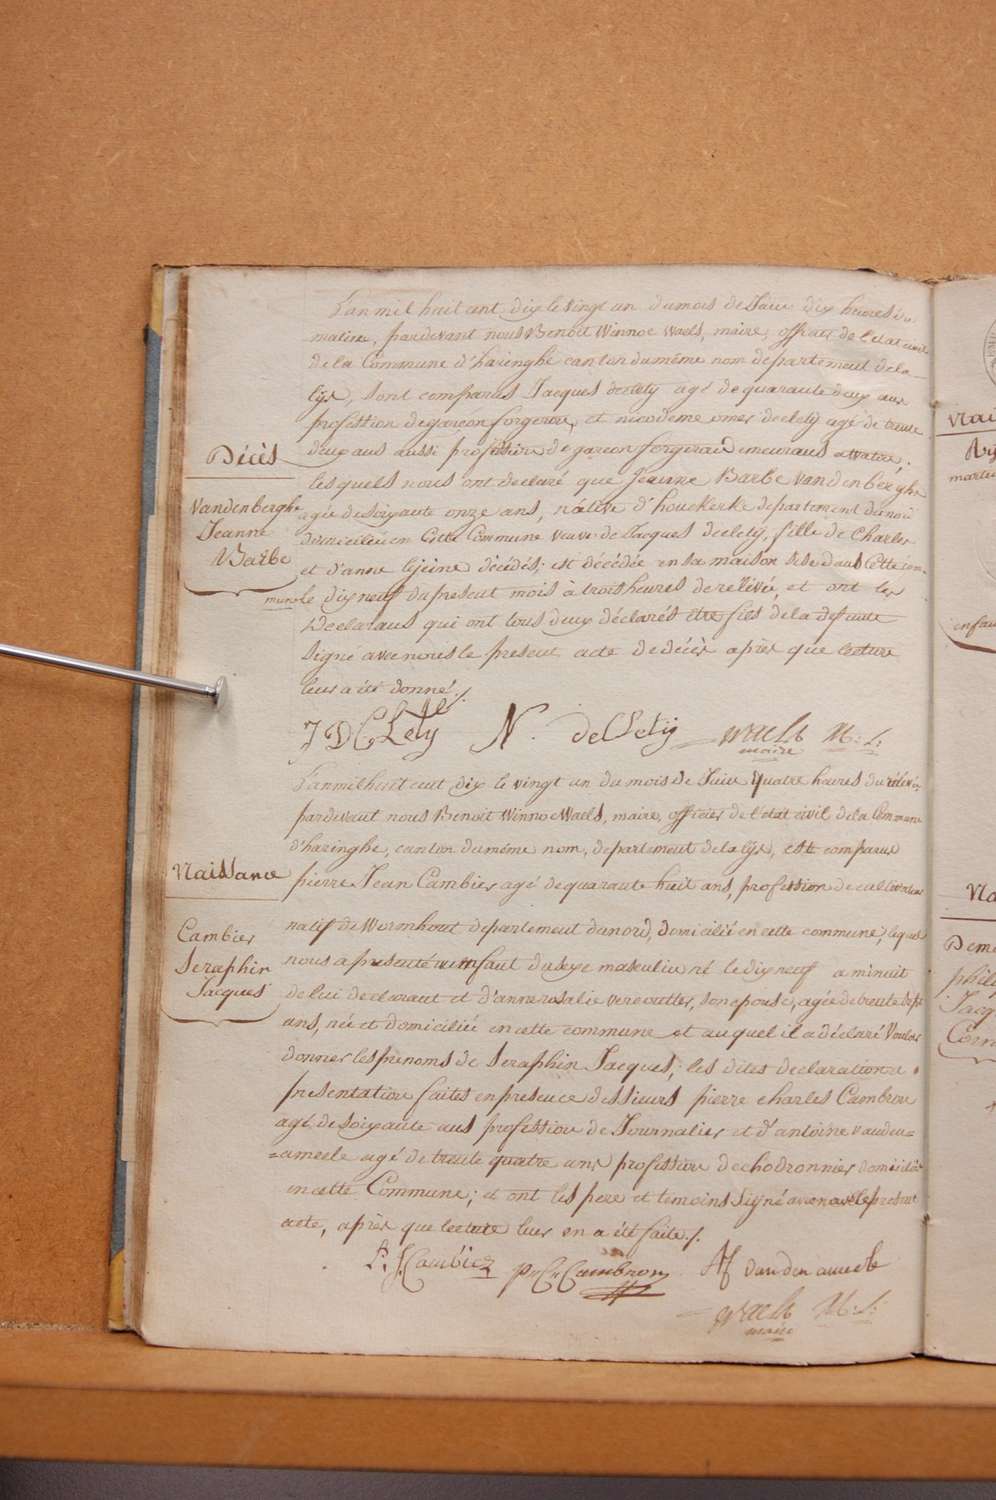 L'an mil huit cent dix le vingt un du mois de Juin dix heures du
matin, pardevant nous Benoit Winnoc Waels, maire, officier de l'etat civil
de la Commune d'haringhe canton du même nom departement de la
lijs, sont comparus Jacques declety agé de quarante deux ans
profession de garcon forgeron, et nicodeme omer declety agé de trente
deux ans aussi profession de garcon forgeron demeurans a watou,
Décès
lesquels nous ont declaré que Jeanne Barbe Vandenberghe
Vandenberghe
Jeanne
Barbe
agée de soixante onze ans, nátive d'houckerke departement du nord
domiciliée en Cette Commune veuve de Jacques declety, fille de Charles
et d'anne lejeine décédés; est décédée en sa maison sise dans Cette com-
mune le dix neuf du present mois à trois heures de relévée, et ont les
Declarans qui ont tous deux déclarés être fils de la defunte
Signé avec nous le present acte de décès après que lecture
leur a été donné./.
J D Clety N. deClety Waels M: L:
maire
L'an mil huit cent dix le vingt un du mois de Juin quatre heures du rélevée
pardevant nous Benoit Winnoc Waels, maire, officier de l'etat civil de la Commune
d'haringhe, canton du même nom, departement de la lijs, est comparu
Naissance
pierre Jean Cambier agé de quarante huit ans, profession de cultivateur
Cambier
Seraphin
Jacques
natif de Wormhout departement du nord, domicilié en cette commune, lequel
nous a presenté un enfant du sexe masculin né le dix neuf a minuit
de lui declarant et d'anne rosalie verecoutter, son epouse, agée de trente sept
ans, née et domiciliée en cette commune et auquel il a déclaré Vouloir
donner les prénoms de Seraphin Jacques; les dites declaration et
presentation faites en presence des sieurs pierre charles Cambron
agé de soixante ans profession de Journalier et d'antoine vanden=
=ameele agé de trente quatre ans profession de chodronnier domiciliés
en cette Commune; et ont les pere et temoins Signé avec nous le present
acte, après que lecture leur en a été faite./.
P. J. Cambier P. C. Cambron AF vanden ameele
Waels M: L:
maire
Nai
martin
enfan
Na
Deme
phili
Jacq
Corn